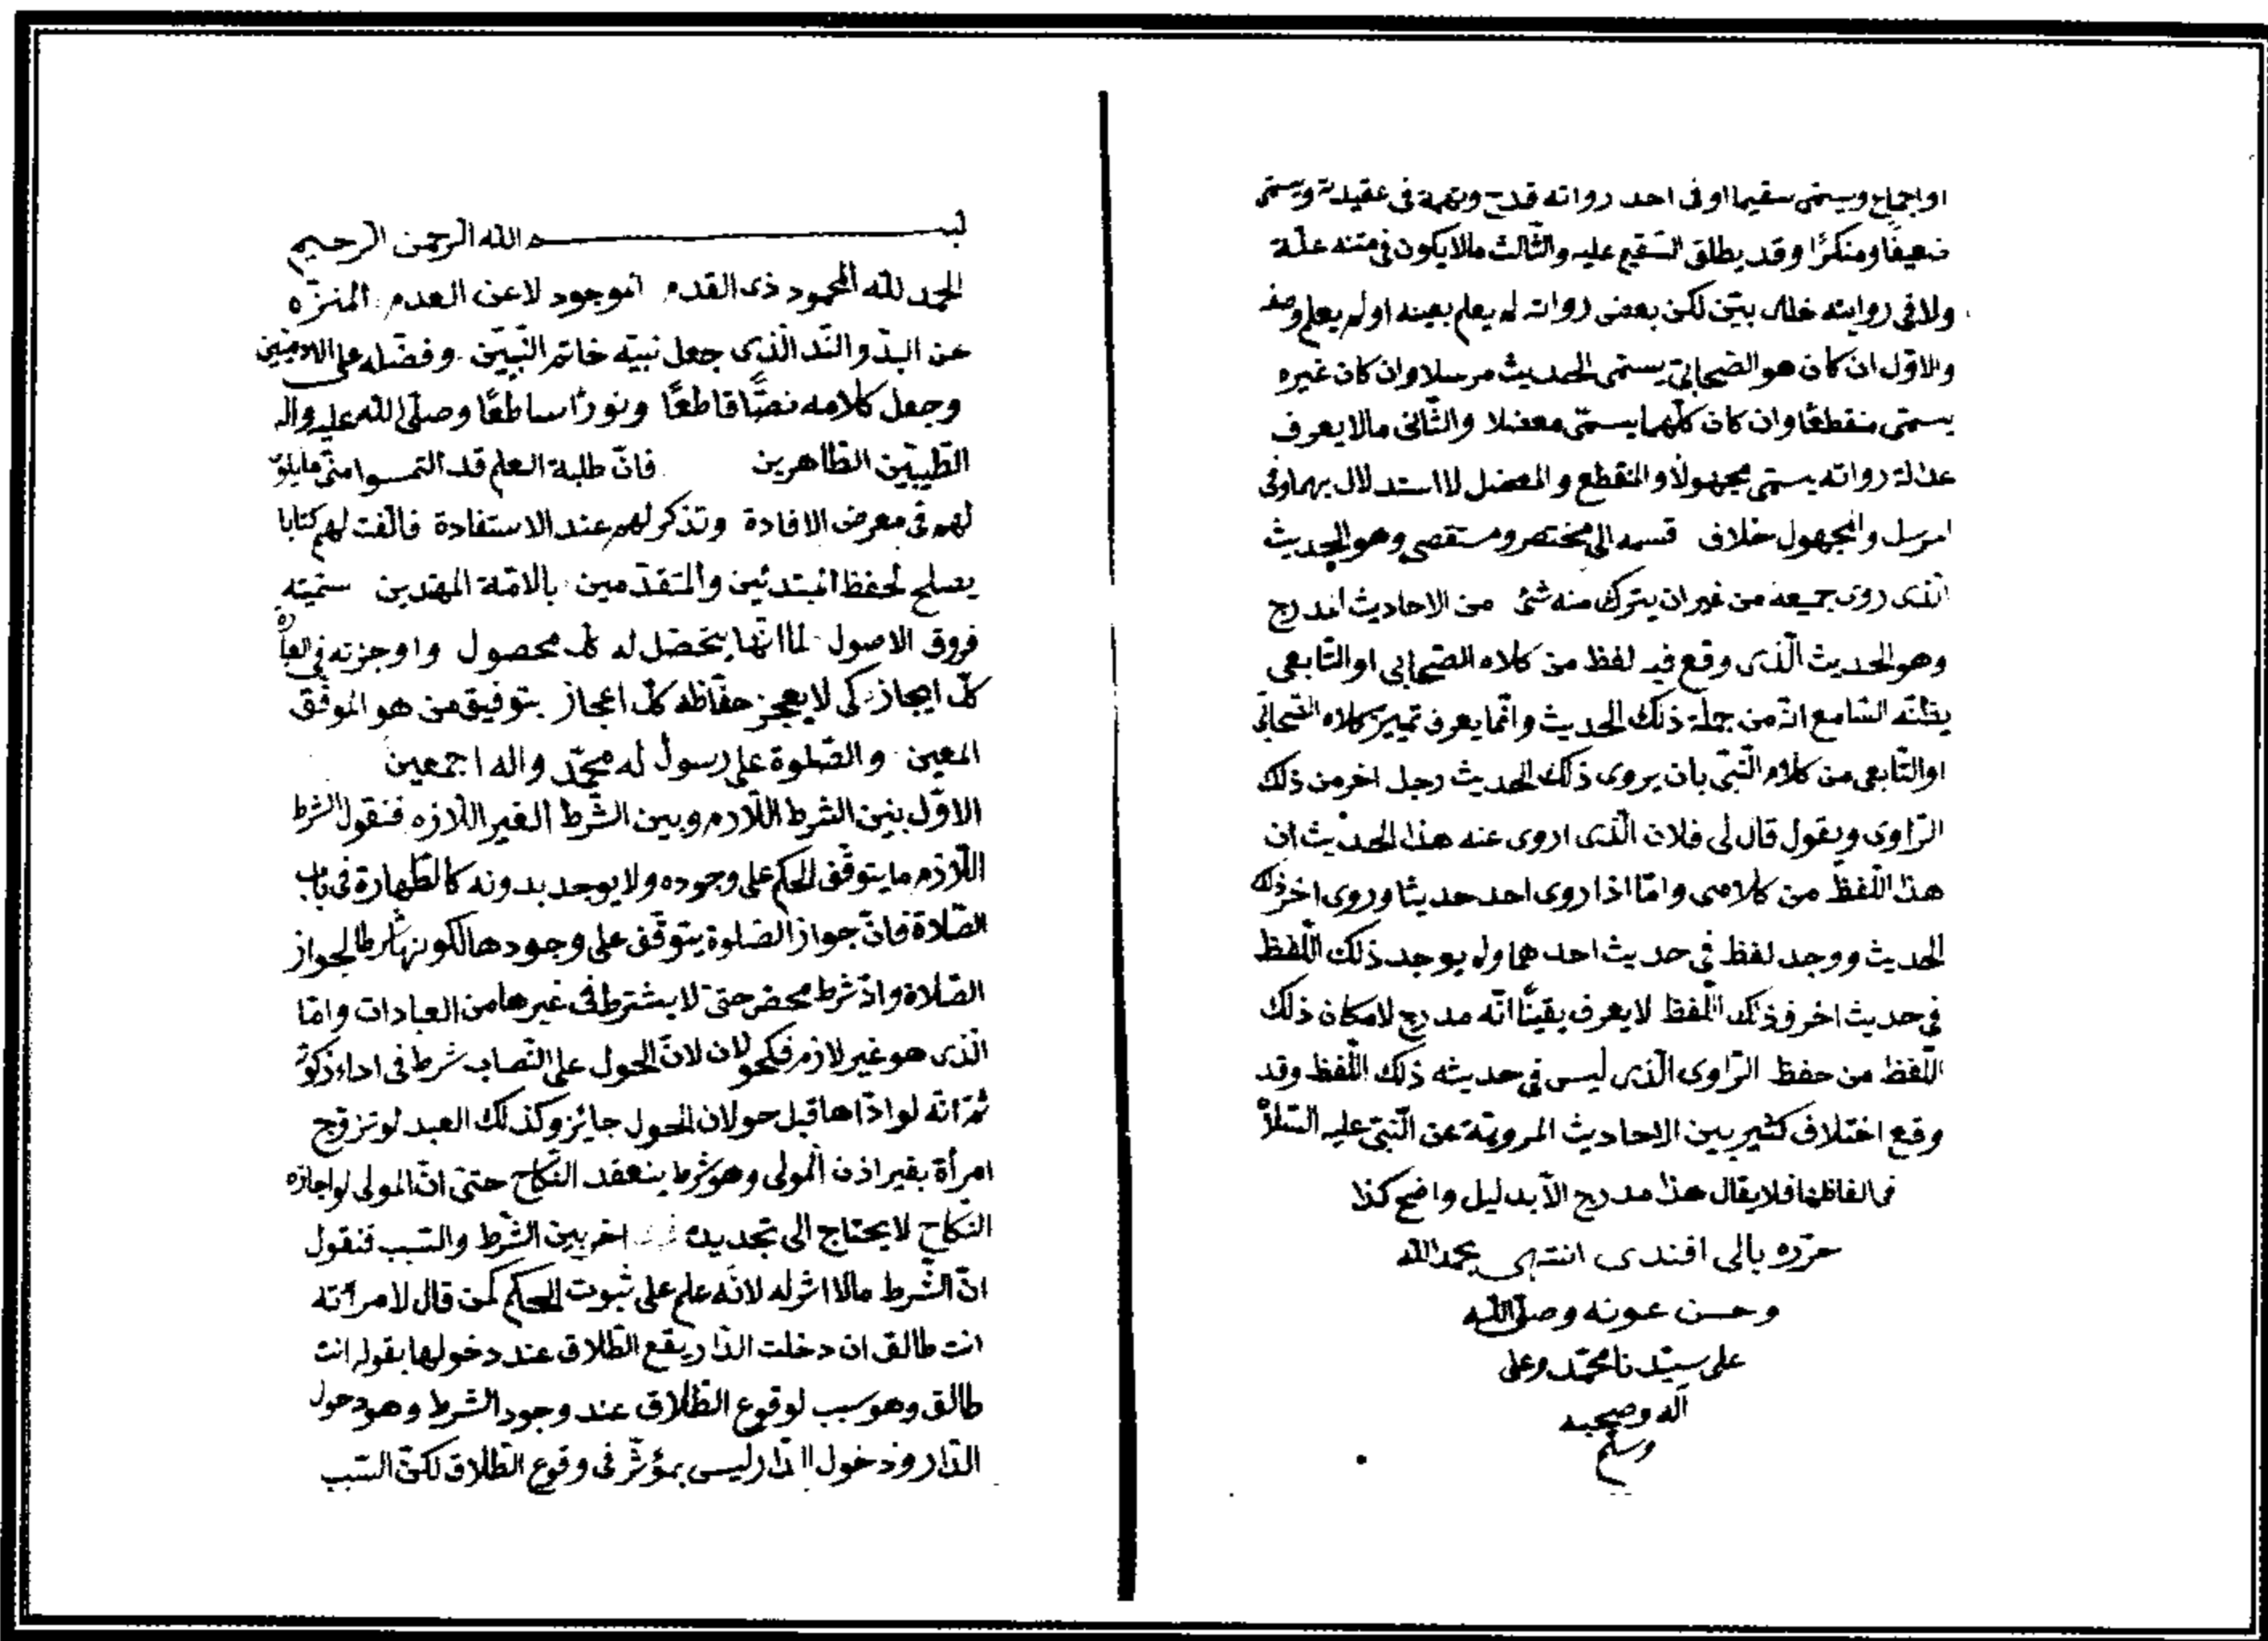 او اجماع ويسمى سقيما او فى احد رواته قدح وتهمة فى عقيدته ويسمى
ضعيفًا ومنكرًا وقد يطلق السّقيم عليه والثّالث مالا يكون فى متنه علّة
ولا فى روايته خلل بيّن لكن بعض رواته لم يعلم بعينه او لم يعلم وصفه
والاوّل ان كان هو الصّحابىّ يسمّى الحديث مرسلا وان كان غيره
يسمّى منقطعًا وان كان كلّهما يسمّى معضلا والثّانى مالا يعرف
عدالة رواته يسمّى مجهولًا والمنقطع والمعضل لا استدلال بهما وفى
المرسل والمجهول خلاف قسمه الى مختصر ومستقصى وهو الحديث
الّذى روى جميعه من غير ان يترك منه شئ من الاحاديث المدرج
وهو الحديث الّذى وقع فيه لفظ من كلام الصّحابى او التّابعى
يظنّه السّامع انّه من جملة ذلك الحديث وانّما يعرف تمييز كلام الصّحابىّ
او التّابعى من كلام النّبىّ بان يروى ذلك الحديث رجل اخر من ذلك
الرّاوى ويقول قال لى فلان الّذى اروى عنه هذا الحديث ان
هذا اللّفظ من كلامى وامّا اذا روى احد حديثا وروى اخر ذلك
الحديث ووجد لفظ فى حديث احدهما ولم يوجد ذلك اللّفظ
فى حديث اخر وذلك اللّفظ لا يعرف يقينًا انّه مدرج لامكان ذلك
اللّفظ من حفظ الرّاوى الّذى ليس فى حديثه ذلك اللّفظ وقد
وقع اختلاف كثير بين الاحاديث المرويّة عن النّبىّ عليه السّلام
فى الفاظها فلا يقال هذا مدرج الّا بدليل واضح كذا
حرّره بالى افندى انتهى بحمد الله
وحسن عونه وصلّى الله
على سيّدنا محمّد وعلى
آله وصحبه
وسلّم
بسم الله الرحمن الرحيم
الحمد للّه المحمود ذى القدم الموجود لا عن العدم المنزّه
عن البدّ والنّد الّذى جعل نبيّه خاتم النّبيّين وفضّله على الادميّين
وجعل كلامه نصًّا قاطعًا ونورًا ساطعًا وصلّى الله عليه وآله
الطّيبّين الطّاهرين فانّ طلبة العلم قد التمسوا منّى ما يليق
لهم فى معرض الافادة وتذكر لهم عند الاستفادة فالّفت لهم كتابا
يصلح لحفظ المبتدئين والمتقدّمين بالامّة المهتدين سمّيته
فروق الاصول لما انّها يتحصّل له كلّ محصول واوجزته فى العبارة
كلّ ايجاز كى لا يعجز حفّاظه كلّ اعجاز بتوفيق من هو الموفّق
المعين والصّلوة على رسول له محمّد واله اجمعين
الاوّل بين الشرط اللّازم وبين الشّرط الغير اللّازم فنقول الشرط
اللّازم ما يتوقّف الحكم على وجوده ولا يوجد بدونه كالطّهارة فى باب
الصّلاة فانّ جواز الصّلوة يتوقّف على وجودها لكونها شرطا لجواز
الصّلاة وانّه شرط محض حتّى لا يشترط فى غيرها من العبادات وامّا
الّذى هو غير لازم فكحولان لانّ الحول على النّصاب شرط فى اداء زكوة
ثمّ انّه لو ادّاها قبل حولان الحول جائز وكذلك العبد لو تزوّج
امرأة بغير اذن المولى وهو شرط ينعقد النّكاح حتّى انّ المولى لو اجازه
النّكاح لا يحتاج الى تجديده اخر بين الشّرط والسّبب فنقول
انّ الشّرط مالا اثر له لانّه علم على ثبوت الحكم كمن قال لامرأته
انت طالق ان دخلت الدّار يقع الطّلاق عند دخولها بقوله انت
طالق وهو سبب لوقوع الطّلاق عند وجود الشرط وهو دخول
الدّار ودخول الدّار ليس بمؤثّر فى وقوع الطّلاق لكنّ السّبب